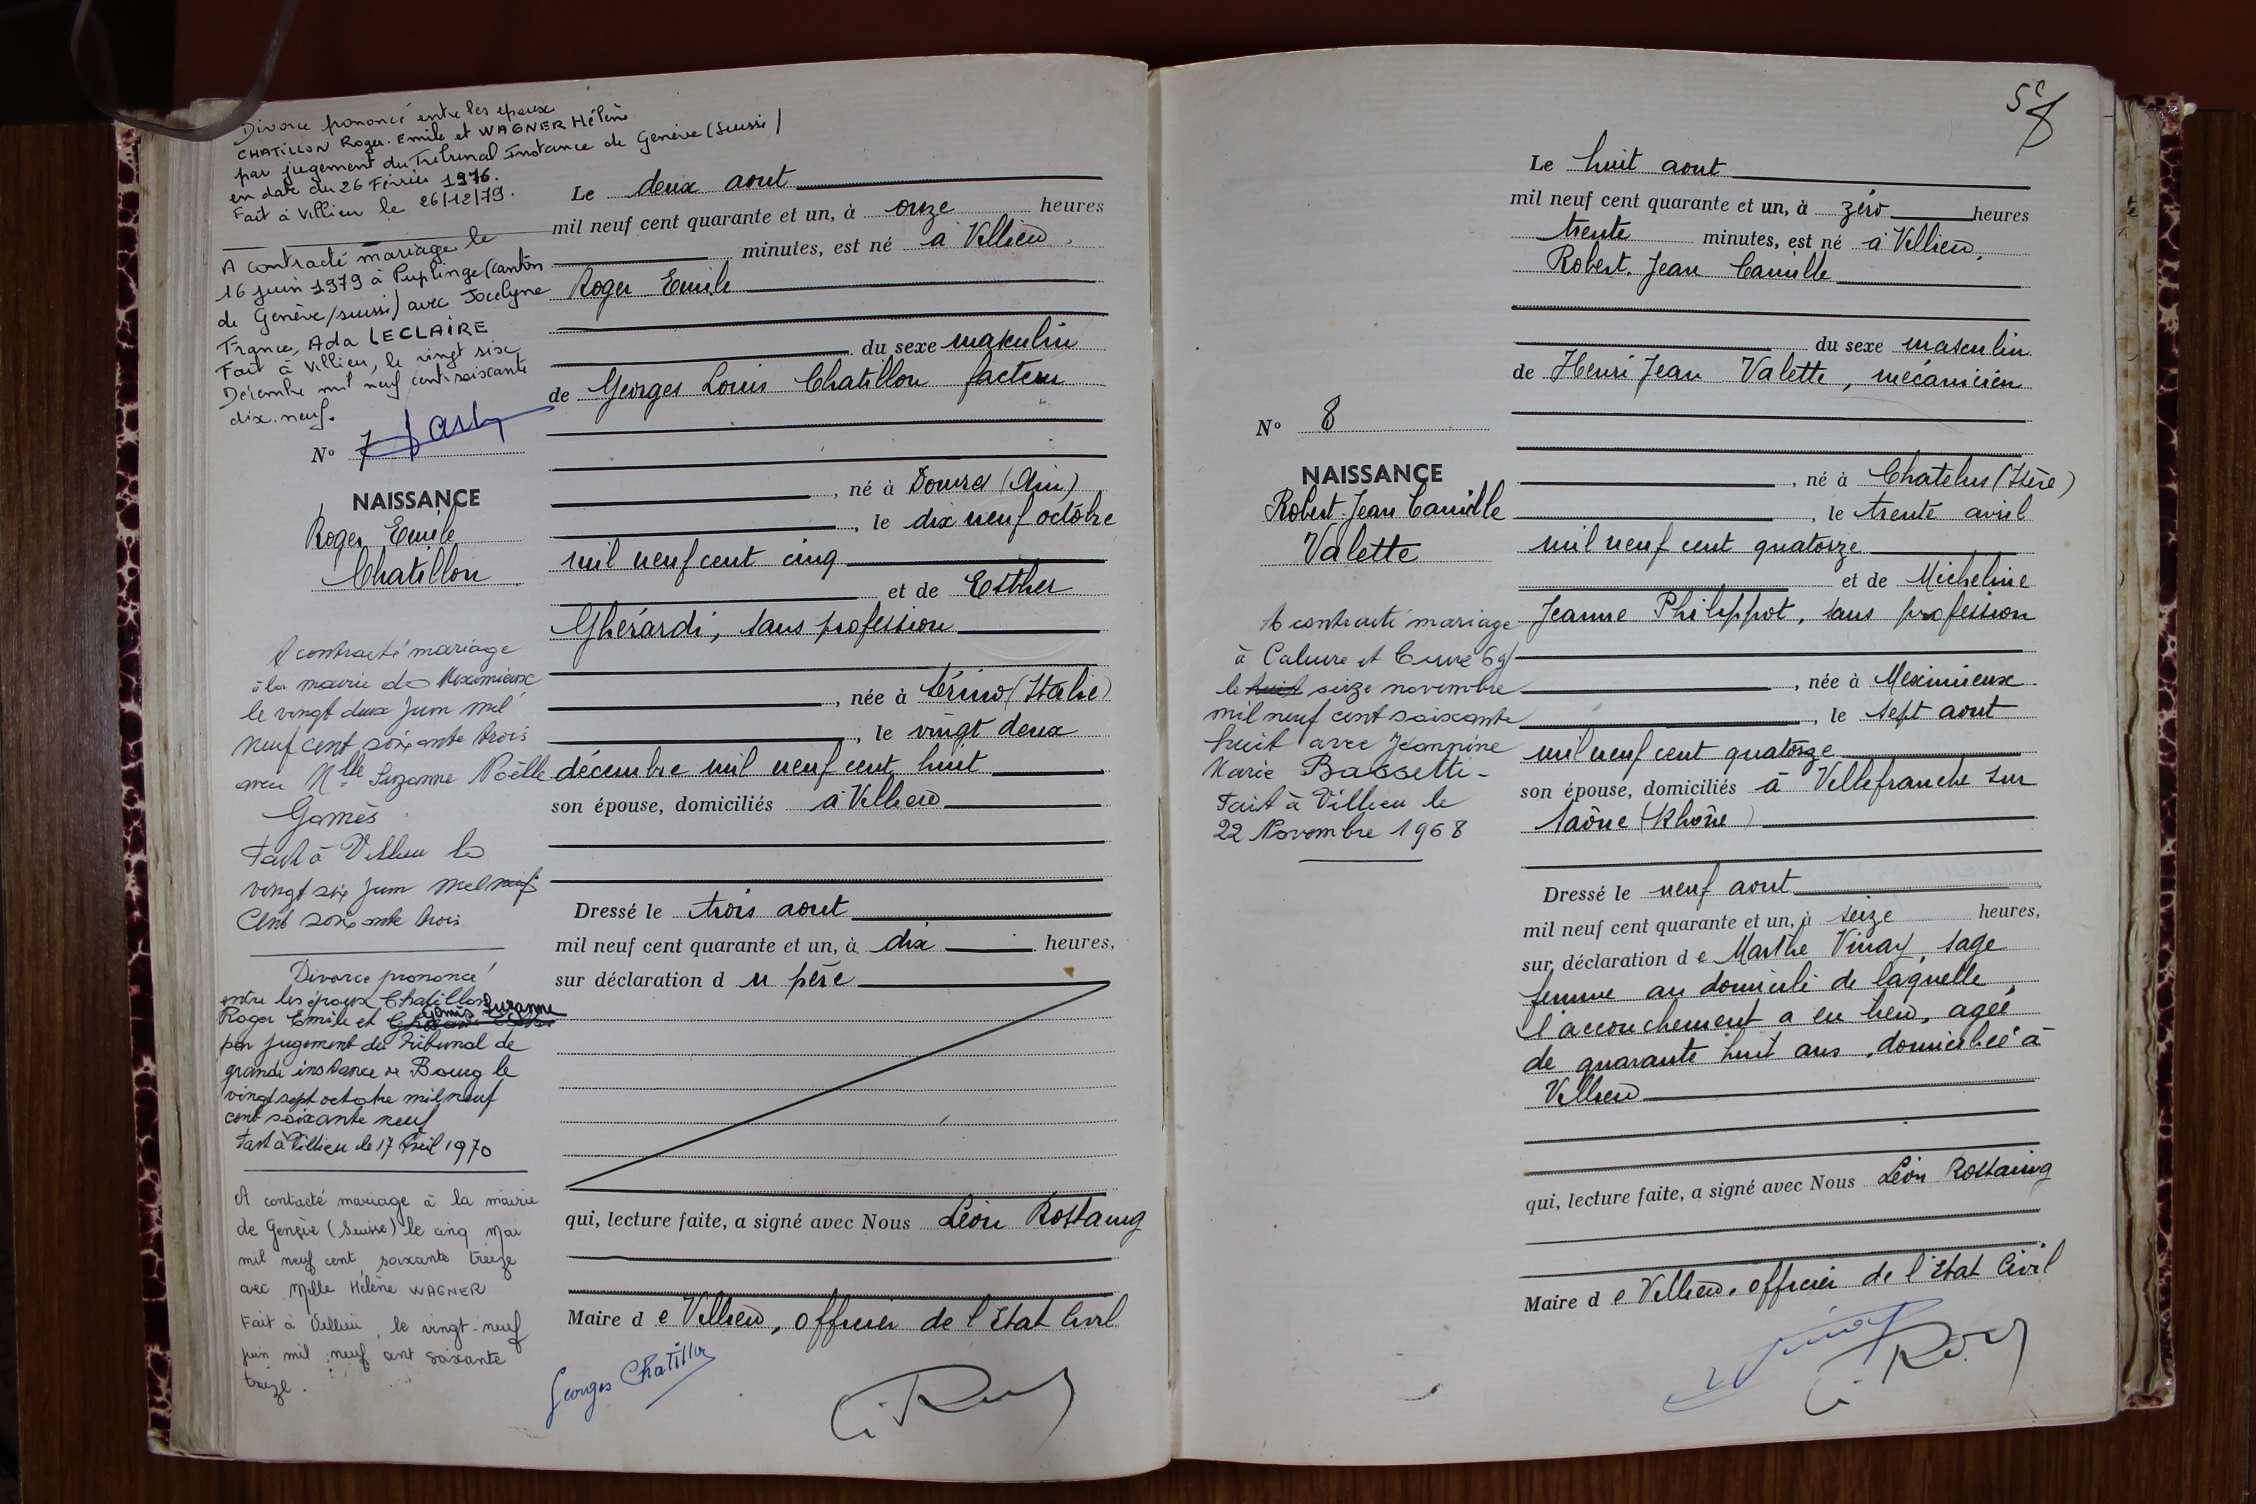 Divorce prononcé entre les epoux
CHATILLON Roger. Emile et WAGNER Hélène
par jugement du Tribunal Instance de Genève (Suisse)
en date du 26 Février 1976.
Fait à Villieu le 26/12/79.
A contracté mariage le
16 juin 1979 à Puplinge (canton
de Genève/suisse) avec Jocelyne
France, Ada LECLAIRE
Fait à Villieu, le vingt six
Décembre mil neuf cent soixante
dix. neuf.
N° 7
NAISSANCE
Roger Emile
Chatillon
A contracté mariage
à la mairie de Meximieux
le vingt deux Juin mil
neuf cent soixante trois
avec Mlle Suzanne Noëlle
Gomès
Fait à Villieu le
vingt six Juin mil neuf
Cent soixante trois
Divorce prononcé
entre les époux Chatillon
Roger Emile et Gomès Suzanne
par jugement du Tribunal de
grande instance de Bourg le
vingt sept octobre mil neuf
cent soixante neuf
Fait à Villieu le 17 Avril 1970
A contacté mariage à la mairie
de Genève (Suisse) le cinq Mai
mil neuf cent soixante treize
avec Melle Hélène WAGNER
Fait à Villieu, le vingt-neuf
juin mil neuf cent soixante
treize.
Le deux aout
mil neuf cent quarante et un, à onze heures
minutes, est né à Villieu,
Roger Emile
du sexe masculin
de Georges Louis Chatillon facteur
, né à Douvres (Ain)
, le dix neuf octobre
mil neuf cent cinq
et de Esther
Ghérardi, sans profession
, née à (Italie)
, le vingt deux
décembre mil neuf cent huit
son épouse, domiciliés à Villieu
Dressé le trois aout
mil neuf cent quarante et un, à dix heures,
sur déclaration d u père
qui, lecture faite, a signé avec Nous Léon Rostaing
Maire d e Villieu, officier de l'Etat Civil
Georges Chatillon
58
Le huit aout
mil neuf cent quarante et un, à zéro heures
trente minutes, est né à Villieu,
Robert. Jean Camille
du sexe masculin
de Henri Jean Valette, mécanicien
N° 8
NAISSANCE
Robert. Jean Camille
Valette
, né à Chatelus (Isère)
, le trente avril
mil neuf cent quatorze
et de Micheline
Jeanne Philippot, sans profession
, née à Meximieux
, le sept aout
mil neuf cent quatorze
son épouse, domiciliés à Villefranche sur
Saône (Rhône)
A contracté mariage
à Caluire et Cuire 69
le huit seize novembre
mil neuf cent soixante
huit avec Jeannine
Marie Bassetti-
Fait à Villieu le
22 Novembre 1968
Dressé le neuf aout
mil neuf cent quarante et un, à seize heures,
sur déclaration d e Marthe Vinay, sage
femme au domicile de laquelle
l'accouchement a eu lieu, agée
de quarante huit ans, domiciliée à
Villieu
qui, lecture faite, a signé avec Nous Léon Rostaing
Maire d e Villieu, officier de l'Etat Civil